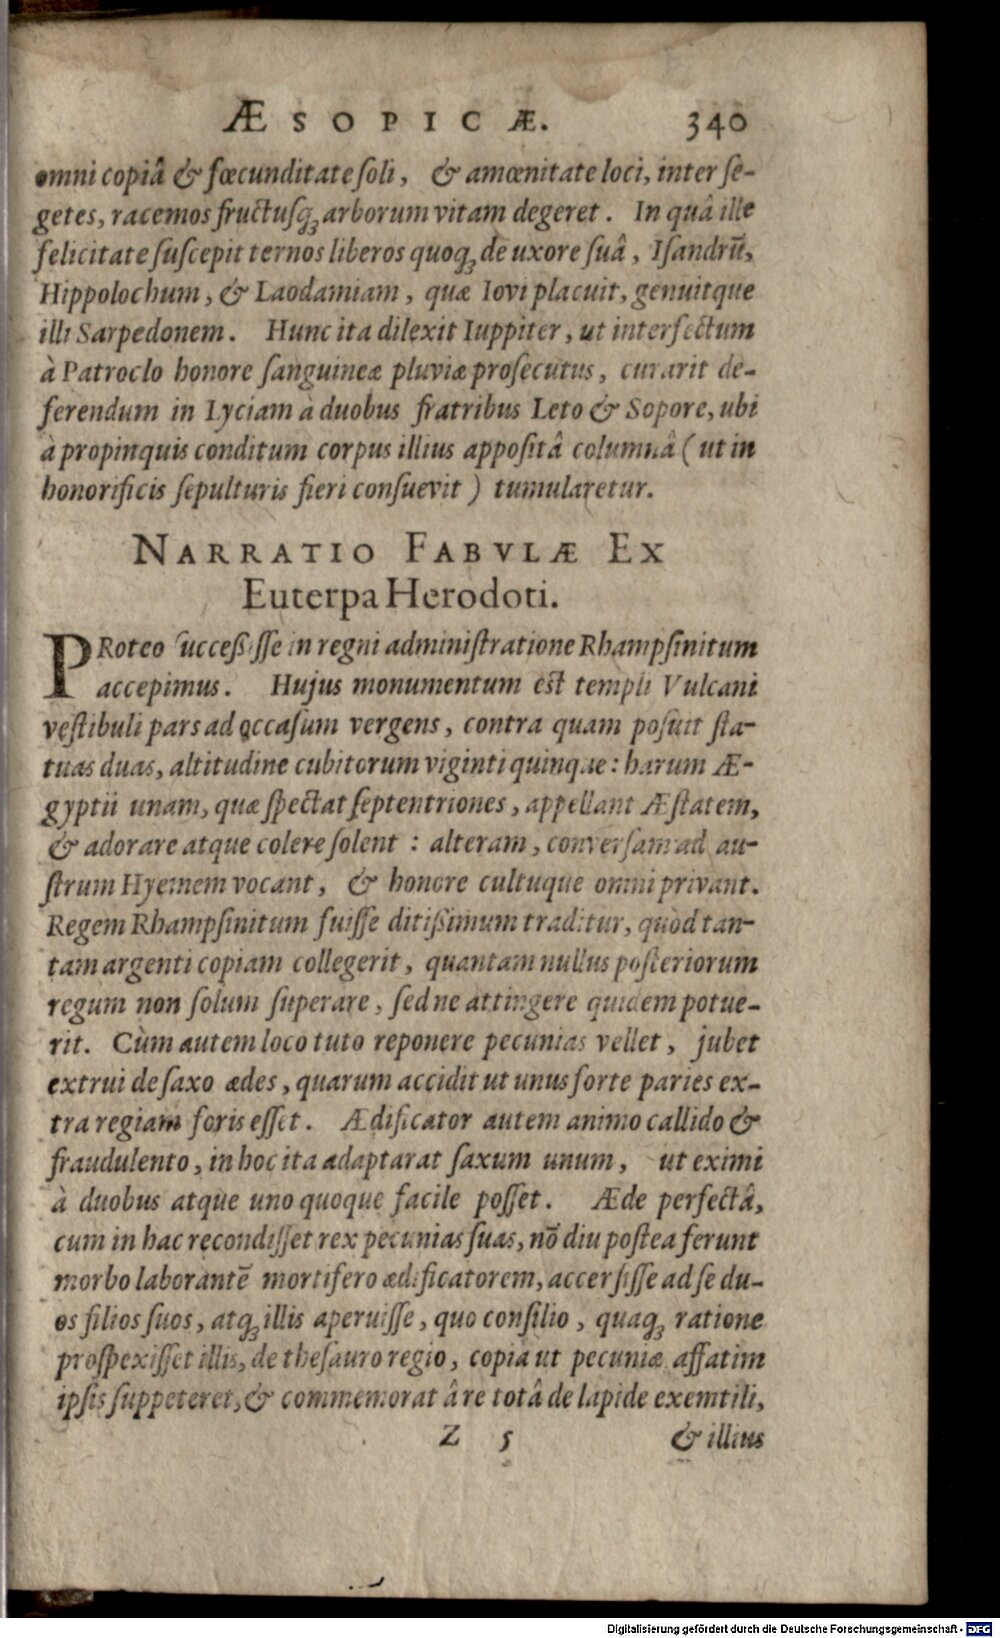 ÆSOPICÆ. 340
omni copiâ & fœcunditate soli, & amœnitate loci, inter se-
getes, racemos fructusq́ꝫ arborum vitam degeret. In quâ ille
felicitate suscepit ternos liberos quoqꝫ de uxore suâ, Isandrū,
Hippolochum, & Laodamiam, quæ Iovi placuit, genuitque
illi Sarpedonem. Hunc ita dilexit Iuppiter, ut interfectum
à Patroclo honore sanguineæ pluviæ prosecutus, curarit de-
ferendum in Lyciam à duobus fratribus Leto & Sopore, ubi
à propinquis conditum corpus illius appositâ columnâ (ut in
honorificis sepulturis fieri consuevit) tumularetur.
NARRATIO FABVLÆ EX
Euterpa Herodoti.
PRoteo successisse in regni administratione Rhampsinitum
accepimus. Hujus monumentum est templi Vulcani
vestibuli pars ad occasum vergens, contra quam posuit sta-
tuas duas, altitudine cubitorum viginti quinque: harum Æ-
gyptii unam, quæ spectat septentriones, appellant Æstatem,
& adorare atque colere solent: alteram, conversam ad au-
strum Hyemem vocant, & honore cultuque omni privant.
Regem Rhampsinitum fuisse ditissimum traditur, quòd tan-
tam argenti copiam collegerit, quantam nullus posteriorum
regum non solum superare, sed ne attingere quidem potue-
rit. Cùm autem loco tuto reponere pecunias vellet, jubet
extrui de saxo ædes, quarum accidit ut unus forte paries ex-
tra regiam foris esset. Ædificator autem animo callido &
fraudulento, in hoc ita adaptarat saxum unum, ut eximi
à duobus atque uno quoque facile posset. Æde perfectâ,
cum in hac recondisset rex pecunias suas, nō diu postea ferunt
morbo laborantē mortifero ædificatorem, accersisse ad se du-
os filios suos, atqꝫ illis aperuisse, quo consilio, quaqꝫ ratione
prospexisset illis, de thesauro regio, copia ut pecuniæ affatim
ipsis suppeteret, & commemorat â re totâ de lapide exemtili,
Z 5 & illius
Digitalisierung gefördert durch die Deutsche Forschungsgemeinschaft - DFG